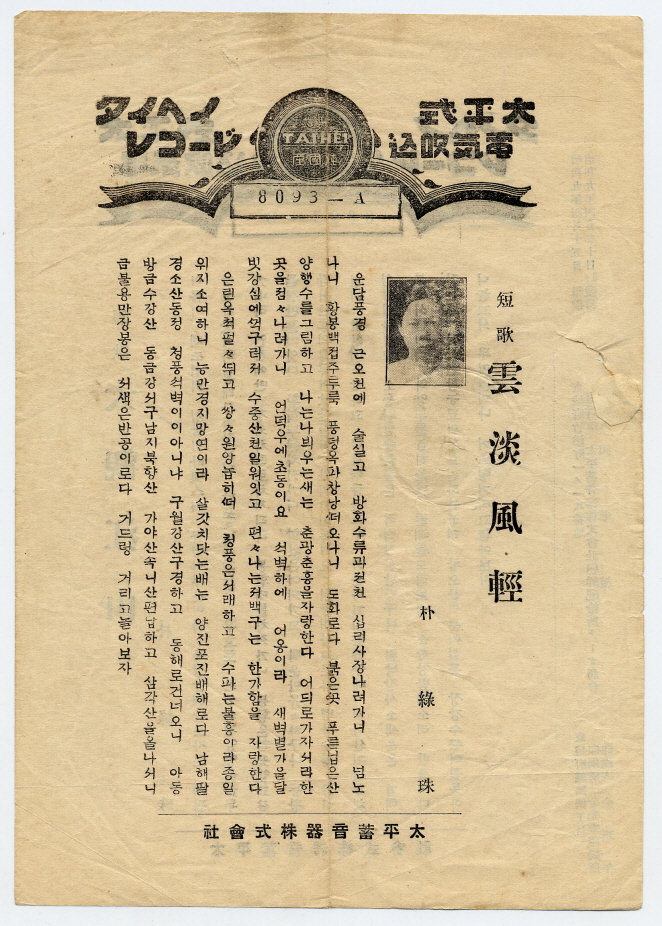 太平式
電気吹込
タイヘイ
レコード
TAIHEI
8093—A
短歌 雲淡風輕
朴綠珠
운담풍경 근오천에 술실고 방화수류과전천 십리사장나려가니 넘노
나니 황봉백접주루룩 풍덩옥파창낭떠오나니 도화로다 붉은꼿 푸른닙은산
양행수를그림하고 나는나븨우는새는 춘광춘흥을자랑한다 어듸로가자서라한
곳을점々나려가니 언덕우에초동이요 석벽하에 어옹이라 새벽별가을달
빗강심에걱구러저 수중산천일워잇고 편々나는저백구는 한가함을 자랑한다
은린옥척펄々뛰고 쌍々원앙놉히떠 청풍은서래하고 수파는불흥이라종일
위지소여하니 능만경지망연이라 살갓치닷는배는 양진포진배해로다 남해팔
경소산동정 청풍석벽이이아니냐 구월강산구경하고 동해로건너오니 아동
방금수강산 동금강서구남지북향산 가야산속니산편남하고 삼각산을올나서니
금불용만장봉은 서색은반공이로다 거드렁 거리고놀아보자
太平蓄音器株式會社